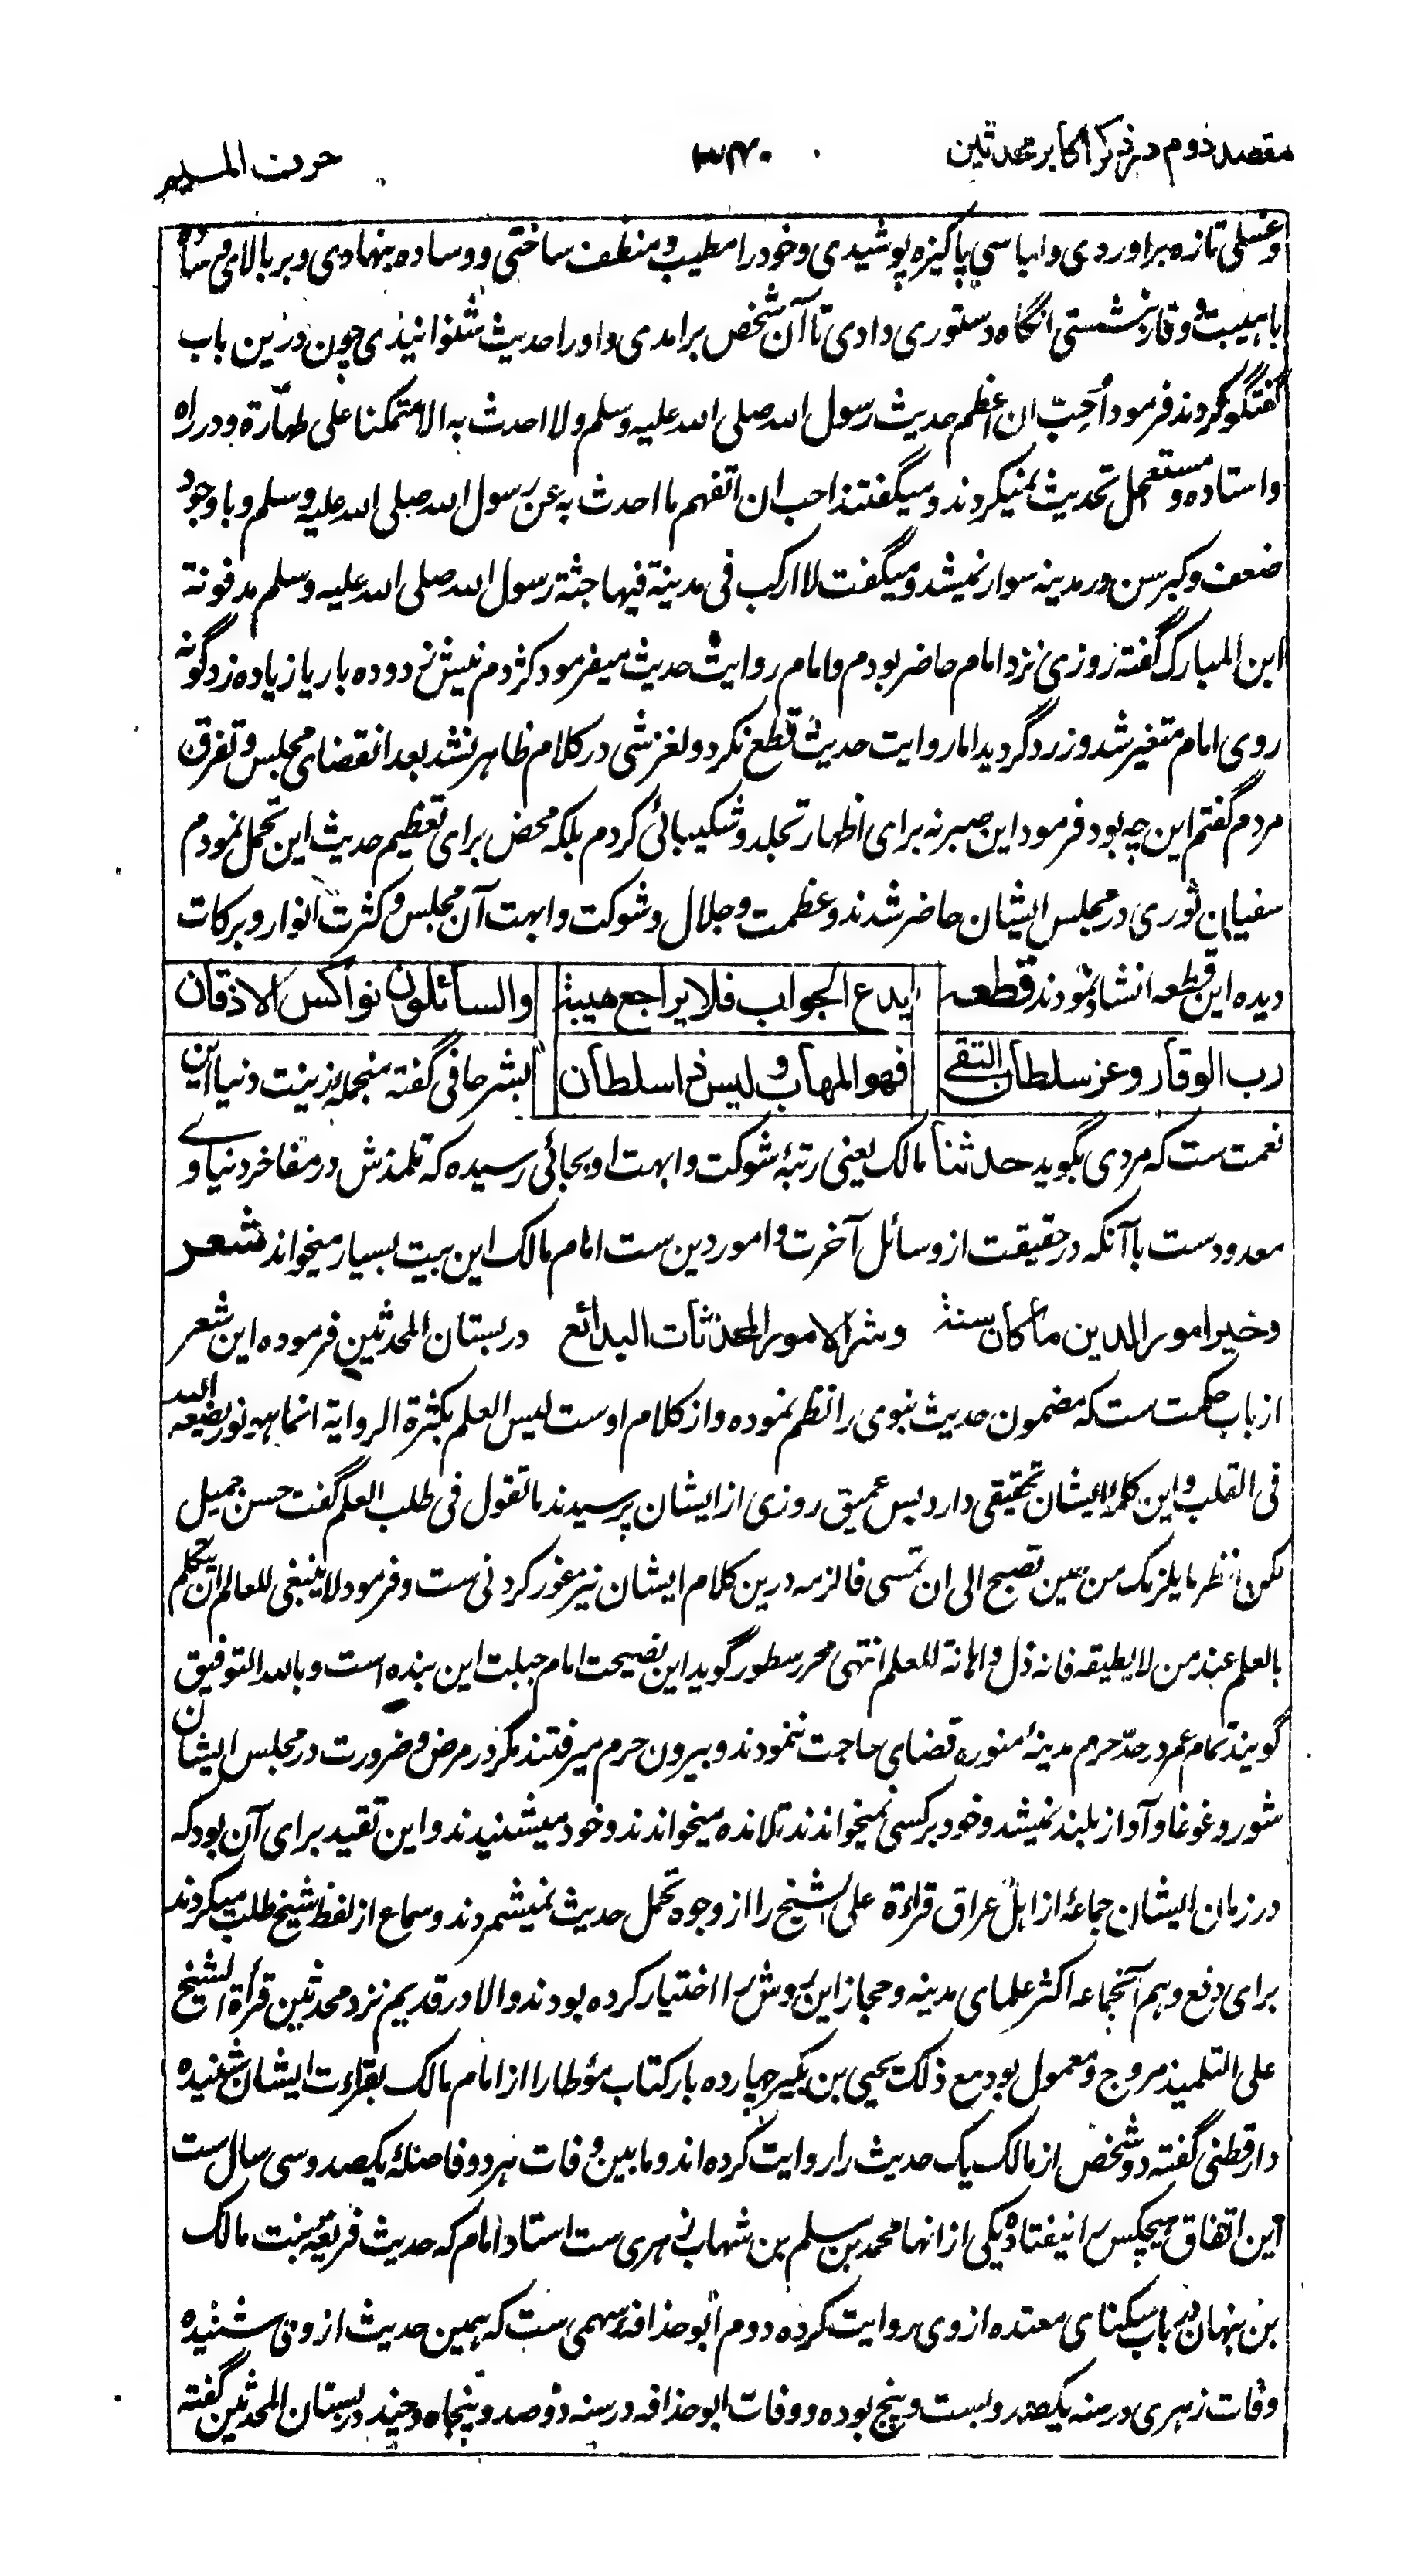 مقصد دوم در ذکر اکابر محدثین ۳۴۰ حرف المیم
وغسلی تازه براوردی ولباسی پاکیزه پوشیدی وخود را مطیب ومنظف ساختی ووساده بنهادی وبر بالای وساده
با هیبت ووقار نشستی انگاه دستوری دادی تا آن شخص برامدی واو را حدیث شنوانیدی چون درین باب
گفتگو کردند فرمود أُحِبّ ان اعظم حدیث رسول الله صلی الله علیه وسلم ولا احدث به الا متمکنا علی طهارة ودر راه
واستاده ومستعجل تحدیث نمیکردند ومیگفتند احب ان اتفهم ما احدث به عن رسول الله صلی الله علیه وسلم وباوجود
ضعف وکبر سن در مدینه سوار نمیشد ومیگفت لا ارکب فی مدینة فیها جثة رسول الله صلی الله علیه وسلم مدفونة
ابن المبارک گفته روزی نزد امام حاضر بودم وامام روایت حدیث میفرمود کژدم نیش زد وده بار یا زیاده زد گونه
روی امام متغیر شد وزرد گردید اما روایت حدیث قطع نکرد ولغزشی در کلام ظاهر نشد بعد انقضای مجلس وتفرق
مردم گفتم این چه بود فرمود این صبر نه برای اظهار تجلد وشکیبائی کردم بلکه محض برای تعظیم حدیث این تحمل نمودم
سفیان ثوری در مجلس ایشان حاضر شدند وعظمت وجلال وشوکت وابهت آن مجلس وکثرت انوار وبرکات
دیده این قطعه انشاد نمودند قطعه یدع الجواب فلا یراجع هیبة والسائلون نواکس الاذقان
رب الوقار وعز سلطان التقی فهو المهاب ولیس ذا سلطان بشر حافی گفته منجمله زینت دنیا این
نعمت ست که مردی بگوید حدثنا مالک یعنی رتبۀ شوکت وابهت او بجائی رسیده که تلمذش در مفاخر دنیاوی
معدودست با آنکه در حقیقت از وسائل آخرت وامور دین ست امام مالک این بیت بسیار میخواند شعر
وخیر امور الدین ما کان سنة وشر الامور المحدثات البدائع در بستان المحدثین فرموده این شعر
از باب حکمت ست که مضمون حدیث نبوی را نظم نموده واز کلام اوست لیس العلم بکثرة الروایة انما هو نور یضعه الله
فی القلب واین کلمۀ ایشان تحقیقی دارد بس عمیق روزی از ایشان پرسیدند ما تقول فی طلب العلم گفت حسن جمیل
لکن انظر ما یلزمک من حین تصبح الی ان تمسی فالزمه درین کلام ایشان نیز غور کردنی ست وفرمود لا ینبغی للعالم ان یتکلم
بالعلم عند من لا یطیقه فانه ذل واهانة للعلم انتهی محرر سطور گوید این نصیحت امام جبلت این بنده است وبالله التوفیق
گویند تمام عمر در حدّ حرم مدینۀ منوره قضای حاجت ننمودند وبیرون حرم میرفتند مگر در مرض وضرورت در مجلس ایشان
شور وغوغا وآواز بلند نمیشد وخود بر کسی نمیخواندند تلامذه میخواندند وخود میشنیدند واین تقید برای آن بود که
در زمان ایشان جماعۀ از اهل عراق قراءة علی الشیخ را از وجوه تحمل حدیث نمیشمردند وسماع از لفظ شیخ طلب میکردند
برای دفع وهم آنجماعه اکثر علمای مدینه وحجاز این روش را اختیار کرده بودند والا در قدیم نزد محدثین قرأة الشیخ
علی التلمیذ مروج ومعمول بود مع ذلک یحیی بن بکیر چهارده بار کتاب مؤطا را از امام مالک بقراءت ایشان شنیده
دارقطنی گفته دو شخص از مالک یک حدیث را روایت کرده اند وما بین وفات هر دو فاصلۀ یکصد وسی سال ست
این اتفاق هیچکس را نیفتاده یکی از انها محمد بن مسلم بن شهاب زهری ست استاد امام که حدیث فریعه بنت مالک
بن سنان در باب سکنای معتده از وی روایت کرده دوم ابو حذافۀ سهمی ست که همین حدیث از وی شنیده
وفات زهری در سنه یکصد وبست وپنج بوده ووفات ابو حذافه در سنه دوصد وپنجاه وچند در بستان المحدثین گفته